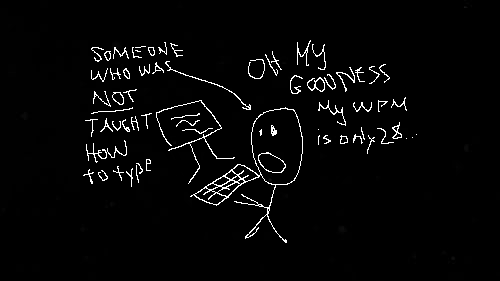 SOMEONE
WHO WAS
NOT
TAUGHT
HOW
to type
OH MY
GOODNESS
My WPM
is only 28...